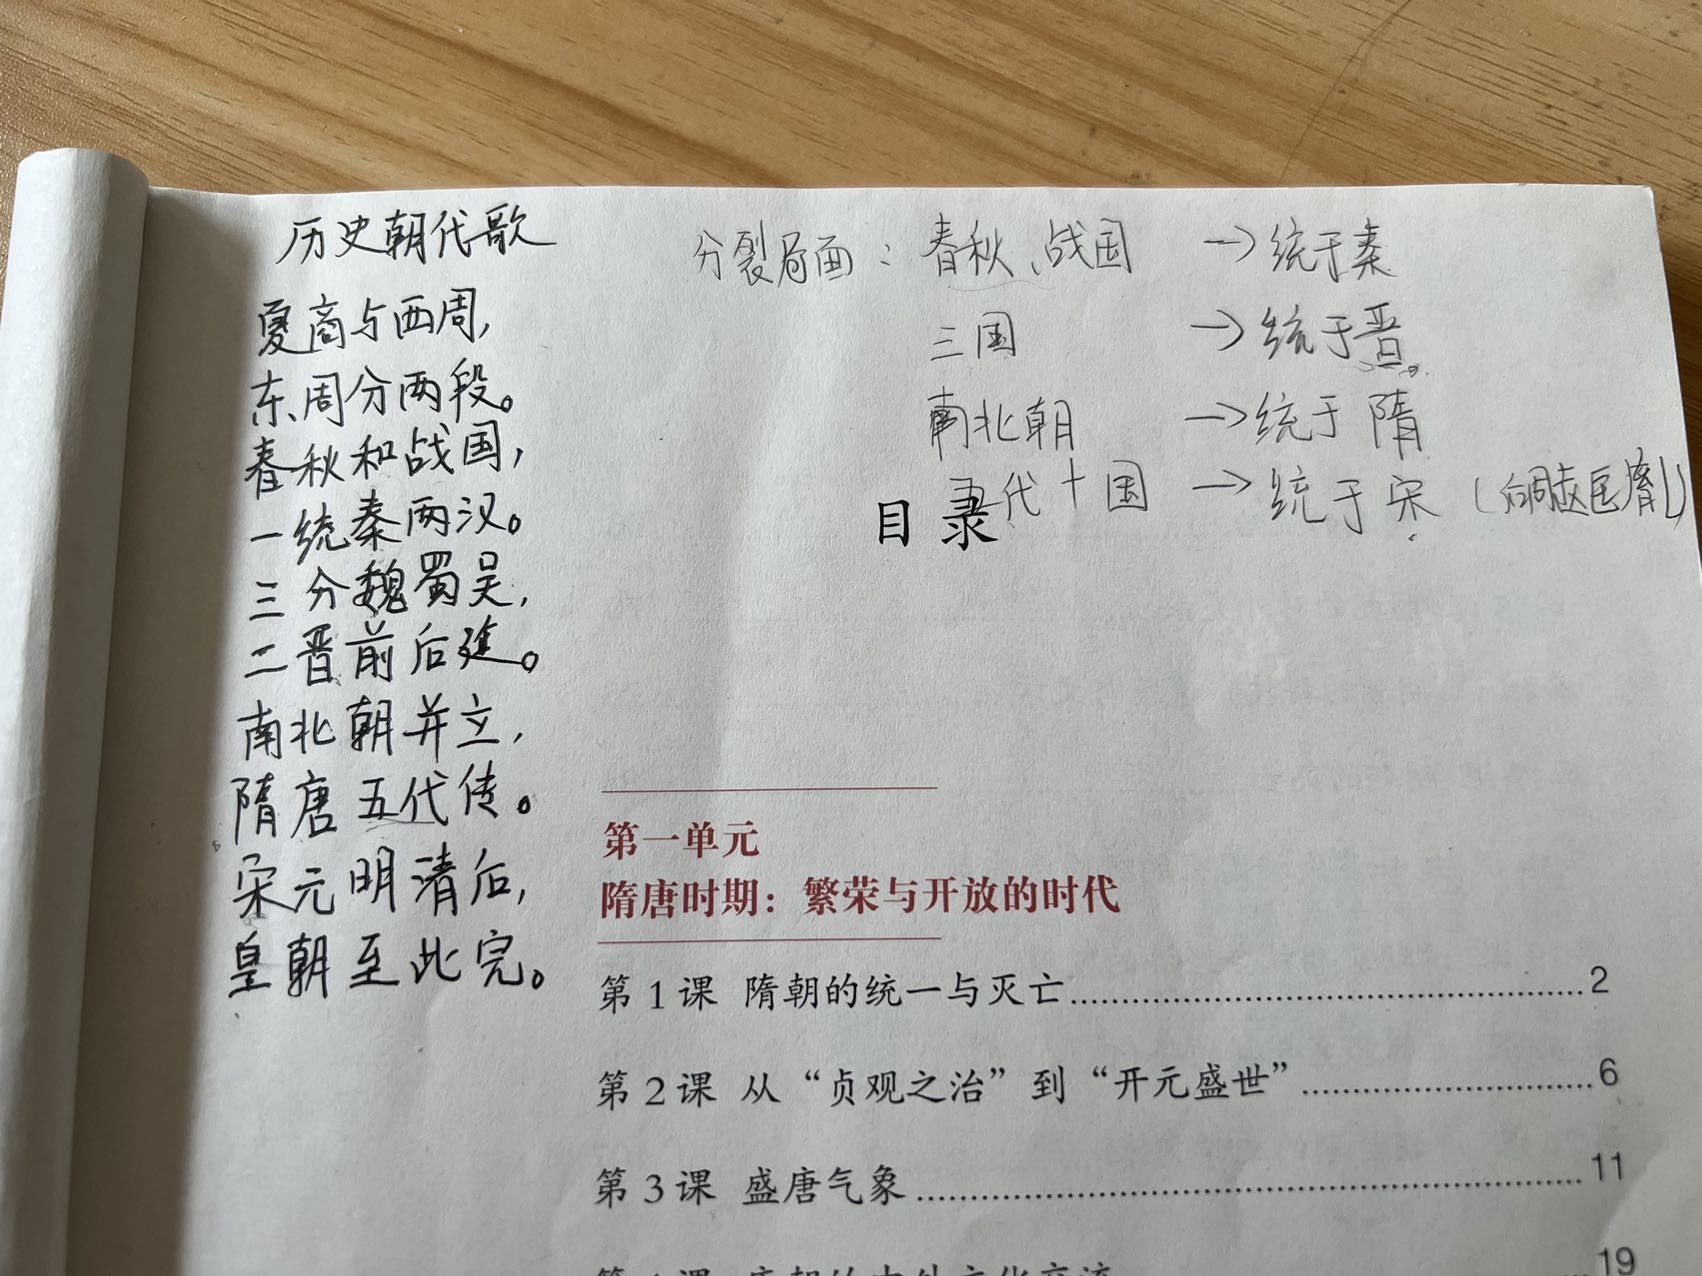 历史朝代歌
夏商与西周,
东周分两段。
春秋和战国,
一统秦两汉。
三分魏蜀吴,
二晋前后延。
南北朝并立,
隋唐五代传。
宋元明清后,
皇朝至此完。
分裂局面：春秋、战国 → 统于秦
三国 → 统于晋。
南北朝 → 统于隋
五代十国 → 统于宋（后周赵匡胤）
目录
第一单元
隋唐时期：繁荣与开放的时代
第1课 隋朝的统一与灭亡 2
第2课 从“贞观之治”到“开元盛世” 6
第3课 盛唐气象 11
19